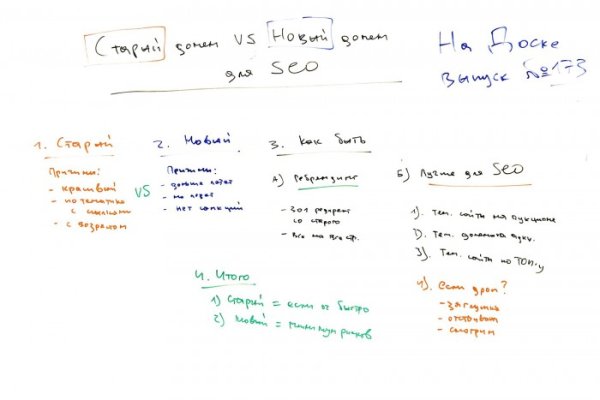 Старый домен VS Новый домен
для SEO
На Доске
выпуск №173
1. Старый
Причины:
- красивый
- по тематике
с ссылками
- с возрастом
VS
2. Новый
Причины:
- дольше
- не
- нет санкций
3. Как быть
А) Ребрендинг
- 301 редирект
со старого
- Все на все стр.
Б) Лучше для SEO
1). Тем. сайты на аукционе
2). Тем. домена аукц.
3). Тем. сайты по ТОП-у
4). Если дроп?
- заглушка
- отстаиваем
- смотрим
4. Итого
1) Старый = если оч быстро
2) Новый = минимум рисков